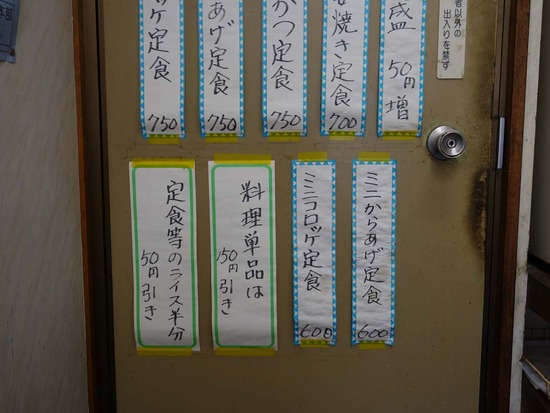 者以外の
出入りを禁ず
盛 50円増
焼き定食
700
かつ定食
750
あげ定食
750
ッケ定食
750
ミニからあげ定食
600
ミニコロッケ定食
600
料理単品は
150円引き
定食等のライス半分
50円引き
本部